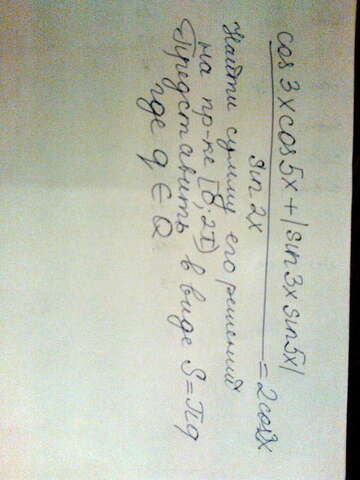 cos3xcos5x+|sin3xsin5x|
sin2x
=2cos2x
Найти сумму его решений
на пр-ке [0;2π)
Представить в виде S=πq
где q∈Q